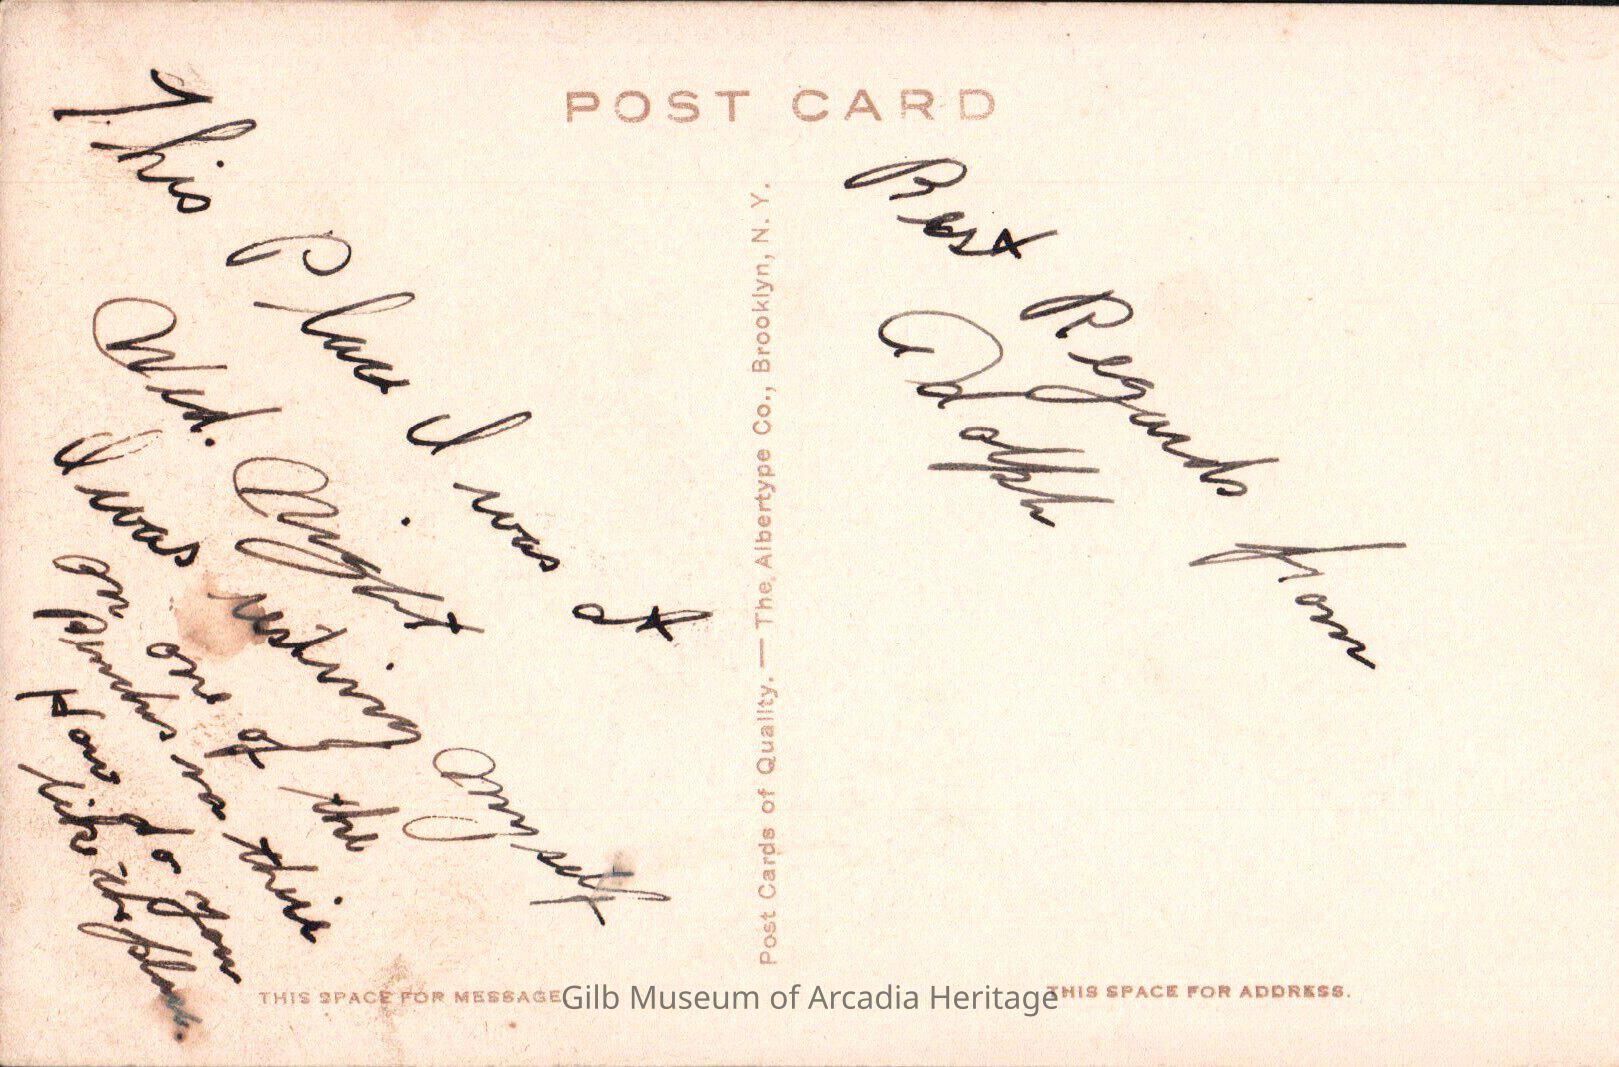 POST CARD
This Place I was at
Wed. Night
I was resting myself
on one of the
Benches in there
How do you
like the place.
Best Regards from
Adolph
Post Cards of Quality. — The Albertype Co., Brooklyn, N. Y.
THIS SPACE FOR MESSAGE
Gilb Museum of Arcadia Heritage
THIS SPACE FOR ADDRESS.